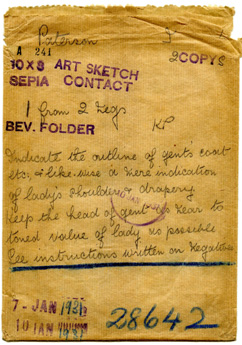 Paterson
A 241
2 COPYS
10 X 8 ART SKETCH
SEPIA CONTACT
1 from 2 Negs
BEV. FOLDER KP
Indicate the outline of gents coat
etc, & likewise a mere indication
of lady's shoulder & drapery
Keep the head of gent as near to
toned value of lady as possible
See instructions written on Negatives
7 - JAN 1931
10 JAN 1931
28642